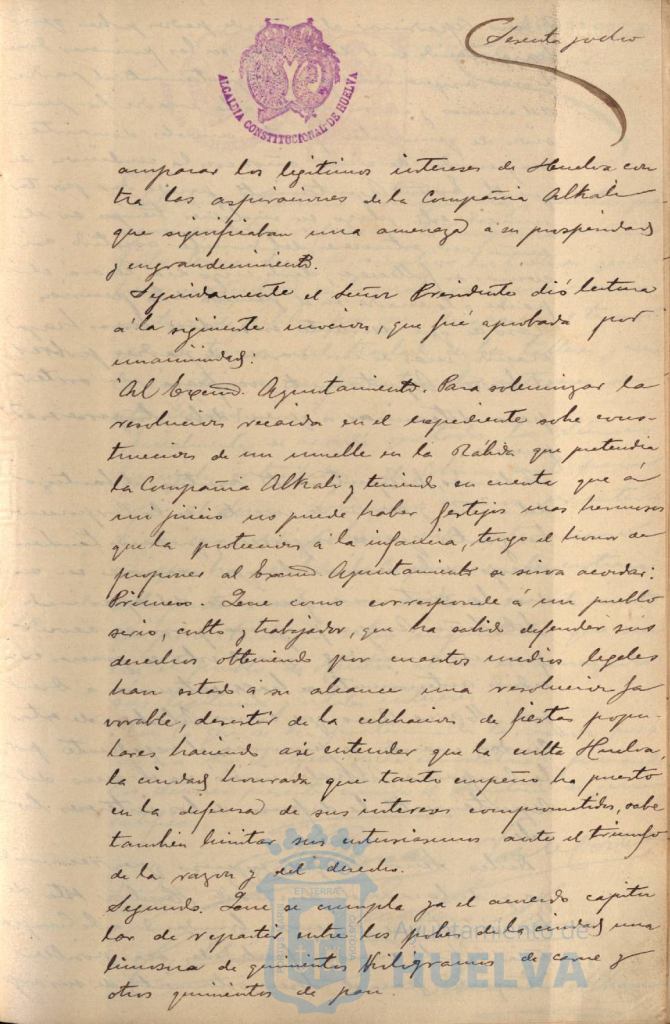 Sesenta y ocho
ALCALDIA CONSTITUCIONAL DE HUELVA
amparar los legitimos intereses de Huelva con
tra las aspiraciones de la Compañia Alkali
que significaban una amenaza á su prosperidad
y engrandecimiento.
Seguidamente el Señor Presidente dió lectura
á la siguiente mocion, que fué aprobada por
unanimidad:
"Al Excmo. Ayuntamiento. Para solemnizar la
resolucion recaida en el expediente sobre cons-
truccion de un muelle en la Rábida que pretendia
la Compañia Alkali y teniendo en cuenta que á
mi juicio no puede haber festejos mas hermosos
que la proteccion á la infancia, tengo el honor de
proponer al Excmo. Ayuntamiento se sirva acordar:
Primero. Que como corresponde á un pueblo
serio, culto y trabajador, que ha sabido defender sus
derechos obteniendo por cuantos medios legales
han estado á su alcance una resolucion fa
vorable, desistir de la celebracion de fiestas popu-
lares haciendo asi entender que la culta Huelva,
la ciudad honrada que tanto empeño ha puesto
en la defensa de sus intereses comprometidos, sabe
tambien limitar sus entusiasmos ante el triunfo
de la razon y del derecho.
Segundo. Que se cumpla ya el acuerdo capitu
lar de repartir entre los pobres de la ciudad una
limosna de quinientos Kilogramos de carne y
otros quinientos de pan.
Ayuntamiento de
HUELVA